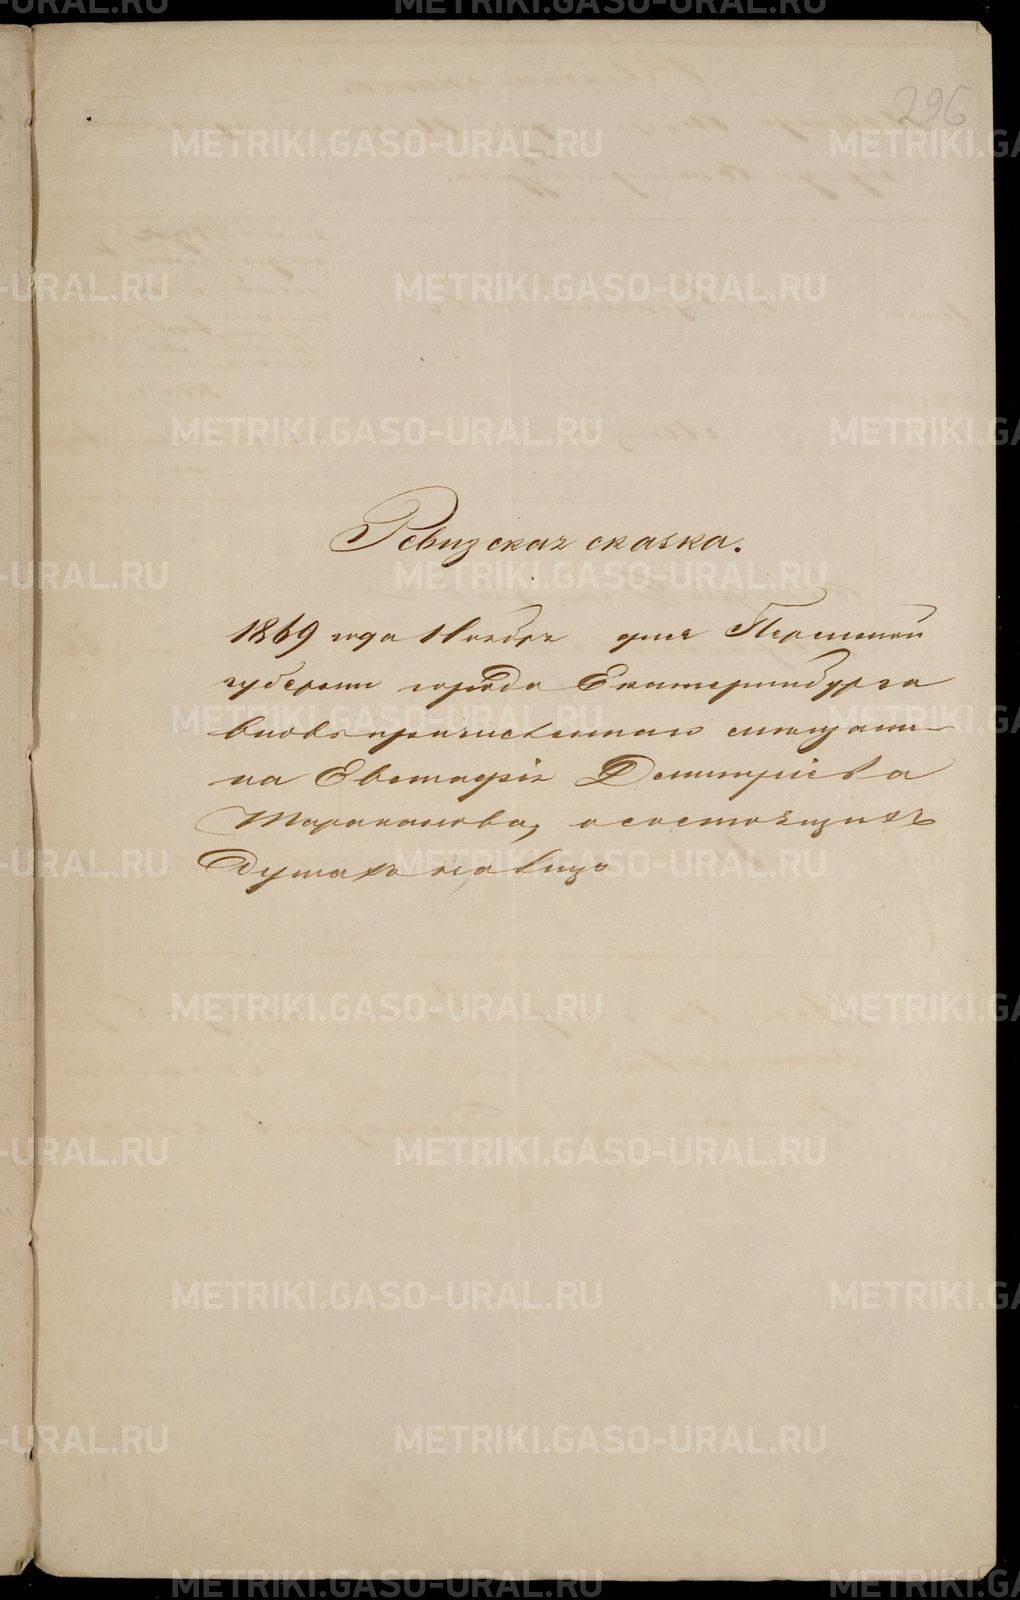 296
Ревизская сказка.
1869 года Ноября дня Пермской
губернии города Екатеринбурга
вновь причисленнаго мещани-
на Евстафія Дмитріева
Тараканова, о состоящихъ
душахъ на лицо
METRIKI.GASO-URAL.RU